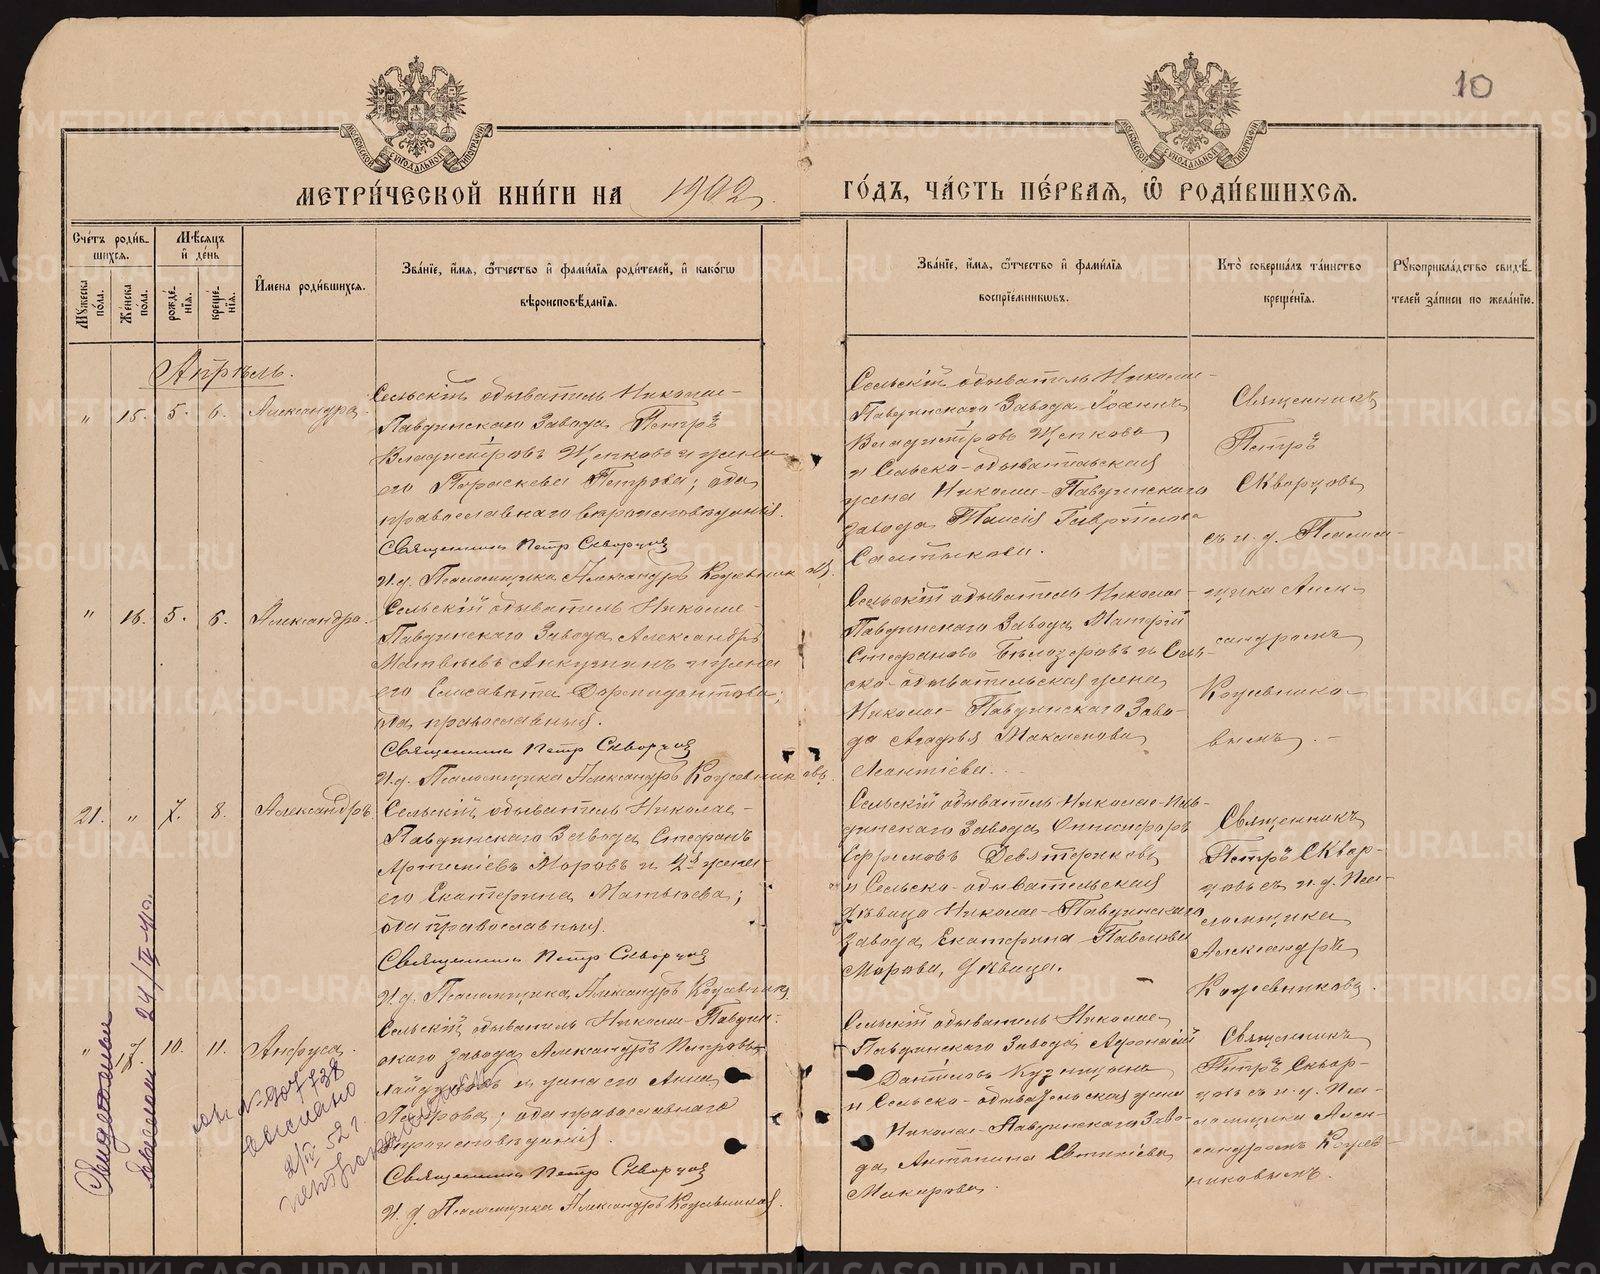 10
МОСКОВСКОЙ СѴНОДАЛЬНОЙ ТИПОГРАФІИ
МОСКОВСКОЙ СѴНОДАЛЬНОЙ ТИПОГРАФІИ
МЕТРИ́ЧЕСКОЙ КНИ́ГИ НА 1902
ГО́ДЪ, ЧА́СТЬ ПЕ́РВАЯ, Ѿ РОДИ́ВШИХСЯ.
Сче́тъ роди́в-
шихся.
Мꙋ́жеска по́ла.
Же́нска по́ла.
Мѣ́сяцъ и де́нь
рожде́-
нїя.
креще́-
нїя.
И́мена роди́вшихся.
Зва́нїе, и́мя, ѻ́тчество и фами́лїя роди́телей, и како́гѡ
вѣроисповѣ́данїя.
Зва́нїе, и́мя, ѻ́тчество и фами́лїя
воспрїе́мниковъ.
Кто̀ соверша́лъ та́инство
креще́нїя.
Рꙋкоприкла́дство свидѣ́-
телей за́писи по жела́нїю.
Апрѣль.
" 15. 5. 6. Александра.
Сельскій обыватель Николае-
Павдинскаго Завода Петръ
Владиміровъ Щепковъ и жена
его Параскева Петрова; оба
православнаго вѣроисповѣданія.
Священникъ Петр Скворцов
И.д. Псаломщика Александръ Кожевниковъ.
Сельскій обыватель Николае-
Павдинскаго Завода Іоаннъ
Владиміровъ Щепковъ
и Сельско-обывательская
жена Николае-Павдинскаго
завода Таисія Гаврилова
Салтыкова.
Священникъ
Петръ
Скворцовъ
съ и. д. Псалом-
щика Алек-
сандромъ
Кожевнико-
вымъ.
" 16. 5. 6. Александра.
Сельскій обыватель Николае-
Павдинскаго Завода Александръ
Матвѣевъ и жена
его Елисавета Дормидонтова;
оба православныя.
Священникъ Петр Скворцов
И.д. Псаломщика Александръ Кожевниковъ.
Сельскій обыватель Николае-
Павдинскаго Завода Матфій
Стефановъ Бѣлозеровъ и Сель-
ско-обывательская жена
Николае-Павдинскаго Заво-
да Агафья Максимова
Леонтіева.
21. " 7. 8. Александръ
Сельскій обыватель Николае-
Павдинскаго Завода Стефанъ
Артеміевъ Моровъ и 2я жена
его Екатерина Матвѣева;
оба православныя.
Священникъ Петр Скворцов
И.д. Псаломщика Александръ Кожевник
Сельскій обыватель Николае-Пав-
динскаго Завода Онисифоръ
Ефремовъ Девятериковъ
и Сельско-обывательская
дѣвица Николае-Павдинскаго
завода Екатерина Павлова
Морова, дѣвица.
Священникъ
Петръ Сквор-
цовъ съ и.д. Пса-
ломщика
Александръ
Кожевниковъ.
" 17. 10. 11. Анфуса.
Сельскій обыватель Николае-Павдин-
скаго завода Александръ Петровъ
Лайдуковъ и жена его Анна
Петрова; оба православнаго
вѣроисповѣданія.
Священникъ Петр Скворцов
И. д. Псаломщика Александръ Кожевников.
Сельскій обыватель Николае-
Павдинскаго Завода Афанасій
Даніловъ Кузницынъ
и Сельско-обывательская жена
Николае-Павдинскаго Заво-
да Антонина Евтихіева
Макарова.
Священникъ
Петръ Сквор-
цовъ съ и.д. Пса-
ломщика Алек-
сандромъ Кожев-
никовымъ.
24/IV-41г.
738
выслано
2/IV 52 г.